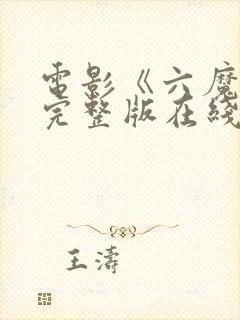 電影《六魔
完整版在綫
王濤